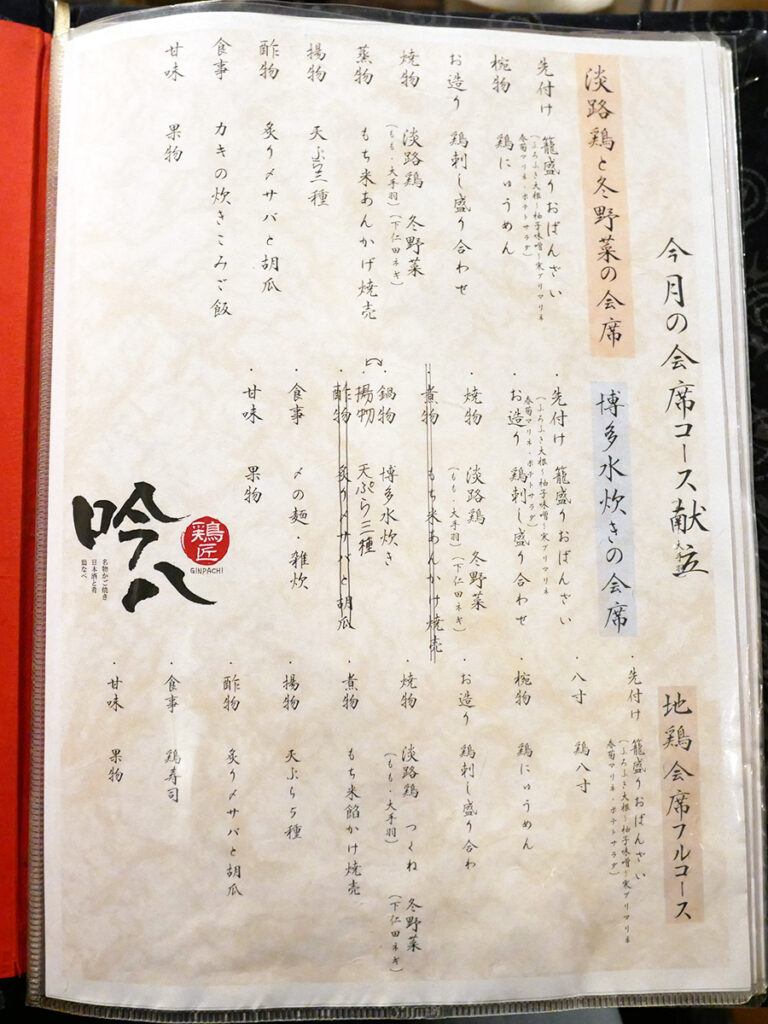 今月の会席コース献立
淡路鶏と冬野菜の会席
先付け 籠盛りおばんざい
(ふろふき大根〜柚子味噌〜寒ブリマリネ
春菊マリネ・ポテトサラダ)
椀物 鶏にゅうめん
お造り 鶏刺し盛り合わせ
焼物 淡路鶏 冬野菜
(もも・大手羽) (下仁田ネギ)
蒸物 もち米あんかけ焼売
揚物 天ぷら三種
酢物 炙り〆サバと胡瓜
食事 カキの炊きこみご飯
甘味 果物
博多水炊きの会席
・先付け 籠盛りおばんざい
(ふろふき大根〜柚子味噌〜寒ブリマリネ
春菊マリネ・ポテトサラダ)
・お造り 鶏刺し盛り合わせ
・焼物 淡路鶏 冬野菜
(もも・大手羽) (下仁田ネギ)
・煮物 もち米あんかけ焼売
・鍋物 博多水炊き
・揚物 天ぷら三種
酢物 炙り〆サバと胡瓜
・食事 〆の麺・雑炊
・甘味 果物
地鶏会席フルコース
・先付け 籠盛りおばんざい
(ふろふき大根〜柚子味噌〜寒ブリマリネ
春菊マリネ・ポテトサラダ)
・八寸 鶏八寸
・椀物 鶏にゅうめん
・お造り 鶏刺し盛り合わ
・焼物 淡路鶏 つくね 冬野菜
(もも・大手羽) (下仁田ネギ)
・煮物 もち米餡かけ焼売
・揚物 天ぷら5種
・酢物 炙り〆サバと胡瓜
・食事 鶏寿司
・甘味 果物
鶏匠
GINPACHI
吟八
名物かご焼き
日本酒と肴
鶏なべ